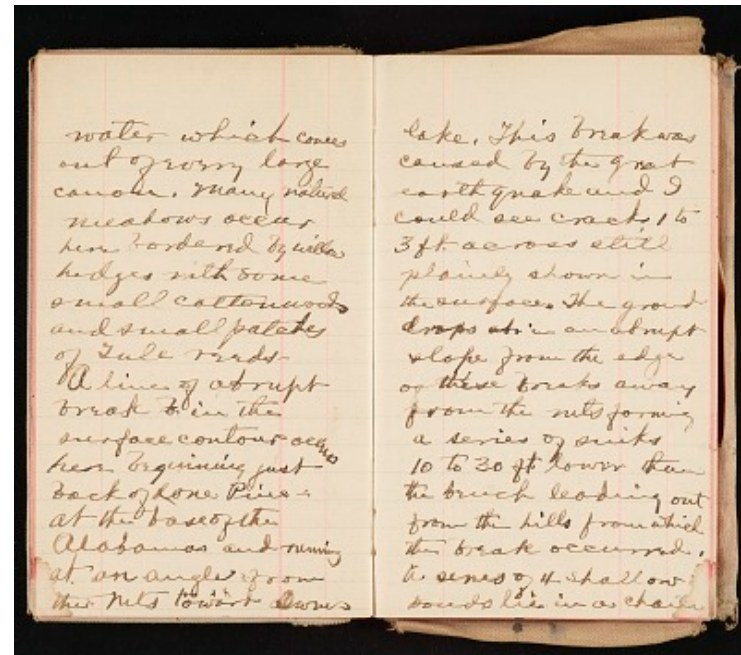 water which comes
out of every large
canon. Many natural
meadows occur
here bordered by willow
hedges with some
small cottonwoods
and small patches
of Tule reeds-
A line of abrupt
break in the
surface contour occurs
here beginning just
back of Lone Pine
at the base of the
Alabamas and running
at an angle from
the Mts toward Owens
lake. This break was
caused by the great
earthquake and I
could see cracks 1 to
3 ft across still
plainly shown in
the surface. The ground
drops in an abrupt
slope from the edge
of these breaks away
from the mts forming
a series of sinks
10 to 30 ft lower than
the bench leading out
from the hills from which
the break occurred.
A series of 4 shallow
ponds lie in a chain